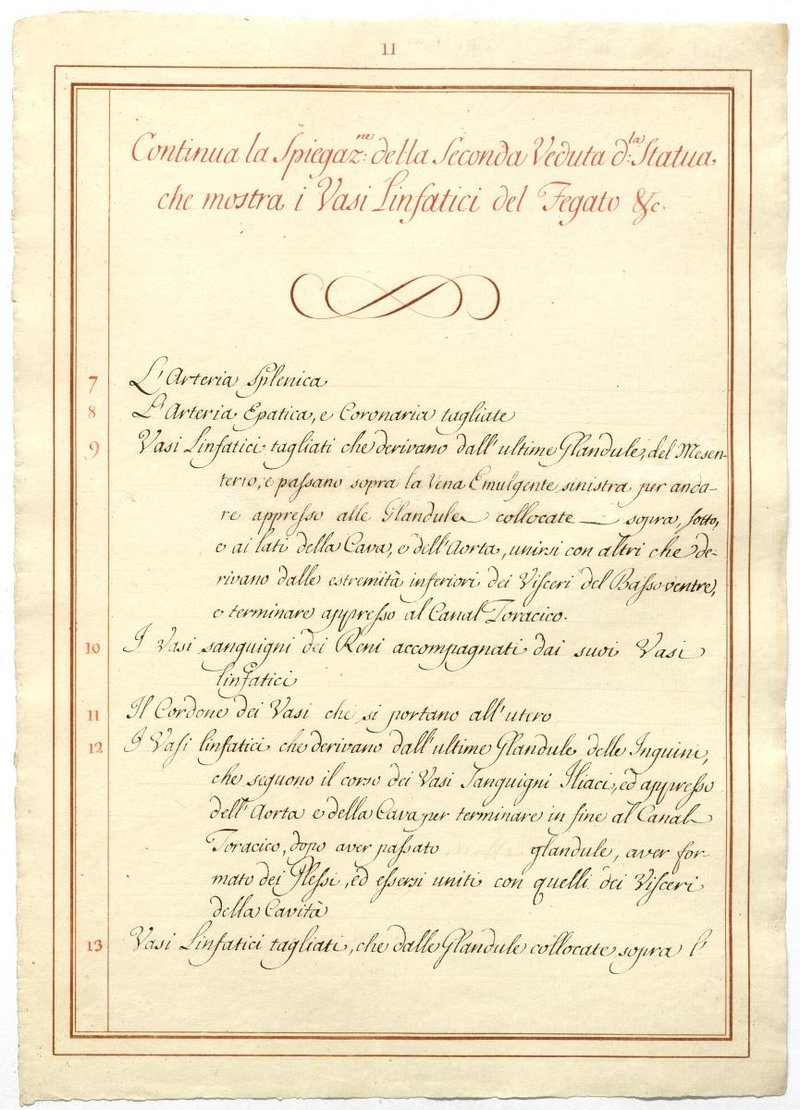 11
Continua la Spiegaz.ne della Seconda Veduta d.la Statua,
che mostra i Vasi Linfatici del Fegato &c.
7 L'Arteria Splenica
8 L'Arteria Epatica, e Coronaria tagliate
9 Vasi Linfatici tagliati che derivano dall'ultime Glandule, del Mesen-
terio, e passano sopra la Vena Emulgente sinistra per anda-
re appresso alle Glandule collocate sopra, sotto,
e ai lati della Cava, e dell'Aorta, unirsi con altri che de-
rivano dalle estremità inferiori dei Visceri del Basso ventre,
e terminare appresso al Canal Toracico.
10 I Vasi sanguigni dei Reni accompagnati dai suoi Vasi
linfatici
11 Il Cordone dei Vasi che si portano all'utero
12 I Vasi linfatici che derivano dall'ultime Glandule delle Inguini,
che seguono il corso dei Vasi Sanguigni Iliaci, ed appresso
dell'Aorta e della Cava per terminare in fine al Canal
Toracico, dopo aver passato glandule, aver for-
mato dei Plessi, ed essersi uniti con quelli dei Visceri
della Cavità
13 Vasi Linfatici tagliati, che dalle Glandule collocate sopra l'